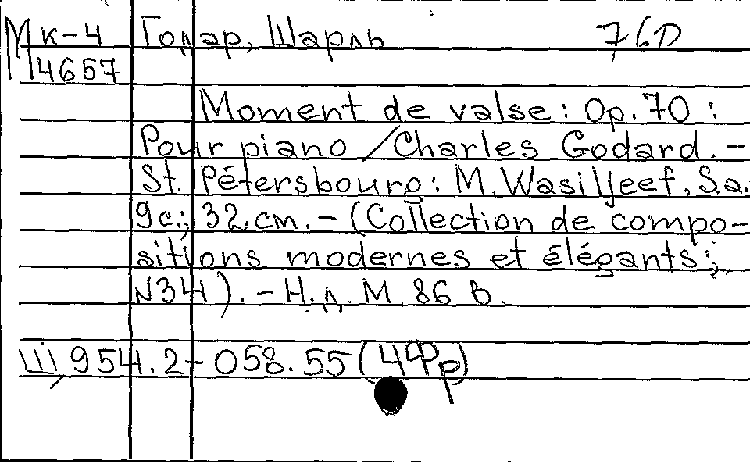 Мк-4 Годар, Шарль 76D
14657
Moment de valse: Op. 70 :
Pour piano / Charles Godard. -
St. Pétersbourg: M. Wasiljeef, S.a.
9c.; 32.cm. - (Collection de compo-
sitions modernes et élégants;
N34). - Н.д. М 86 В.
Щ 954.2-058.55 (4Фр)